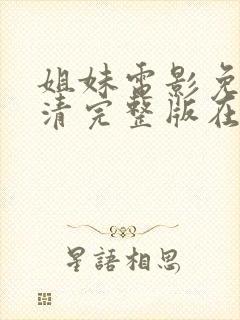 姐妹电影免
清完整版在
星語相思